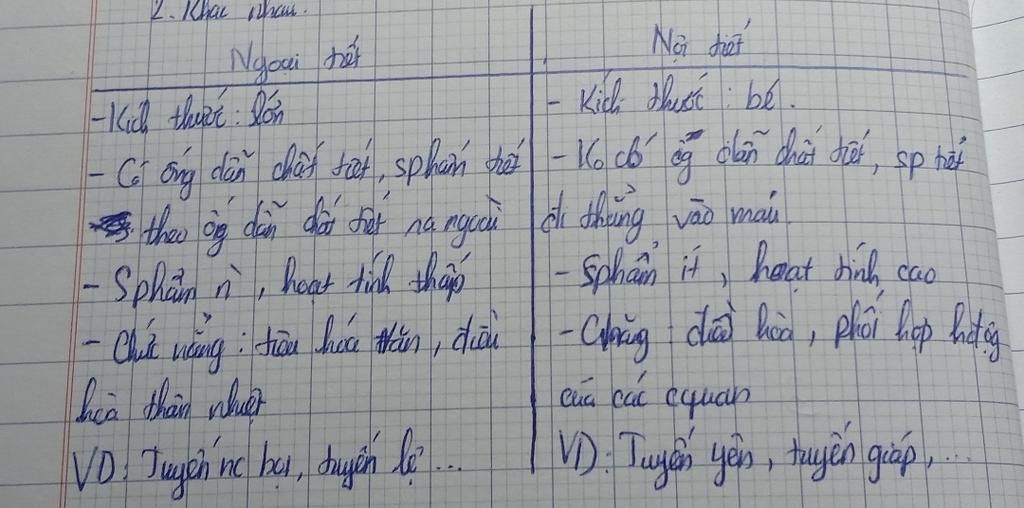 2. Khác nhau.
Ngoại tiết
- Kích thước: lớn
- Có ống dẫn chất tiết, sphẩm tiết
theo ốg dẫn chất tiết ra ngoài
- Sphẩm n`, hoạt tính thấp
- Chức năng: tiêu hóa tăn, điều
hoà thân nhiệt
VD: Tuyến nc bọt, tuyến lệ...
Nội tiết
- Kích thước: bé.
- Ko có ốg dẫn chất tiết, sp tiết
đi thẳng vào máu
- Sphẩm ít, hoạt tính cao
- Cnăng: điều hoà, phối hợp hđộg
của các cquan
VD: Tuyến yên, tuyến giáp,...